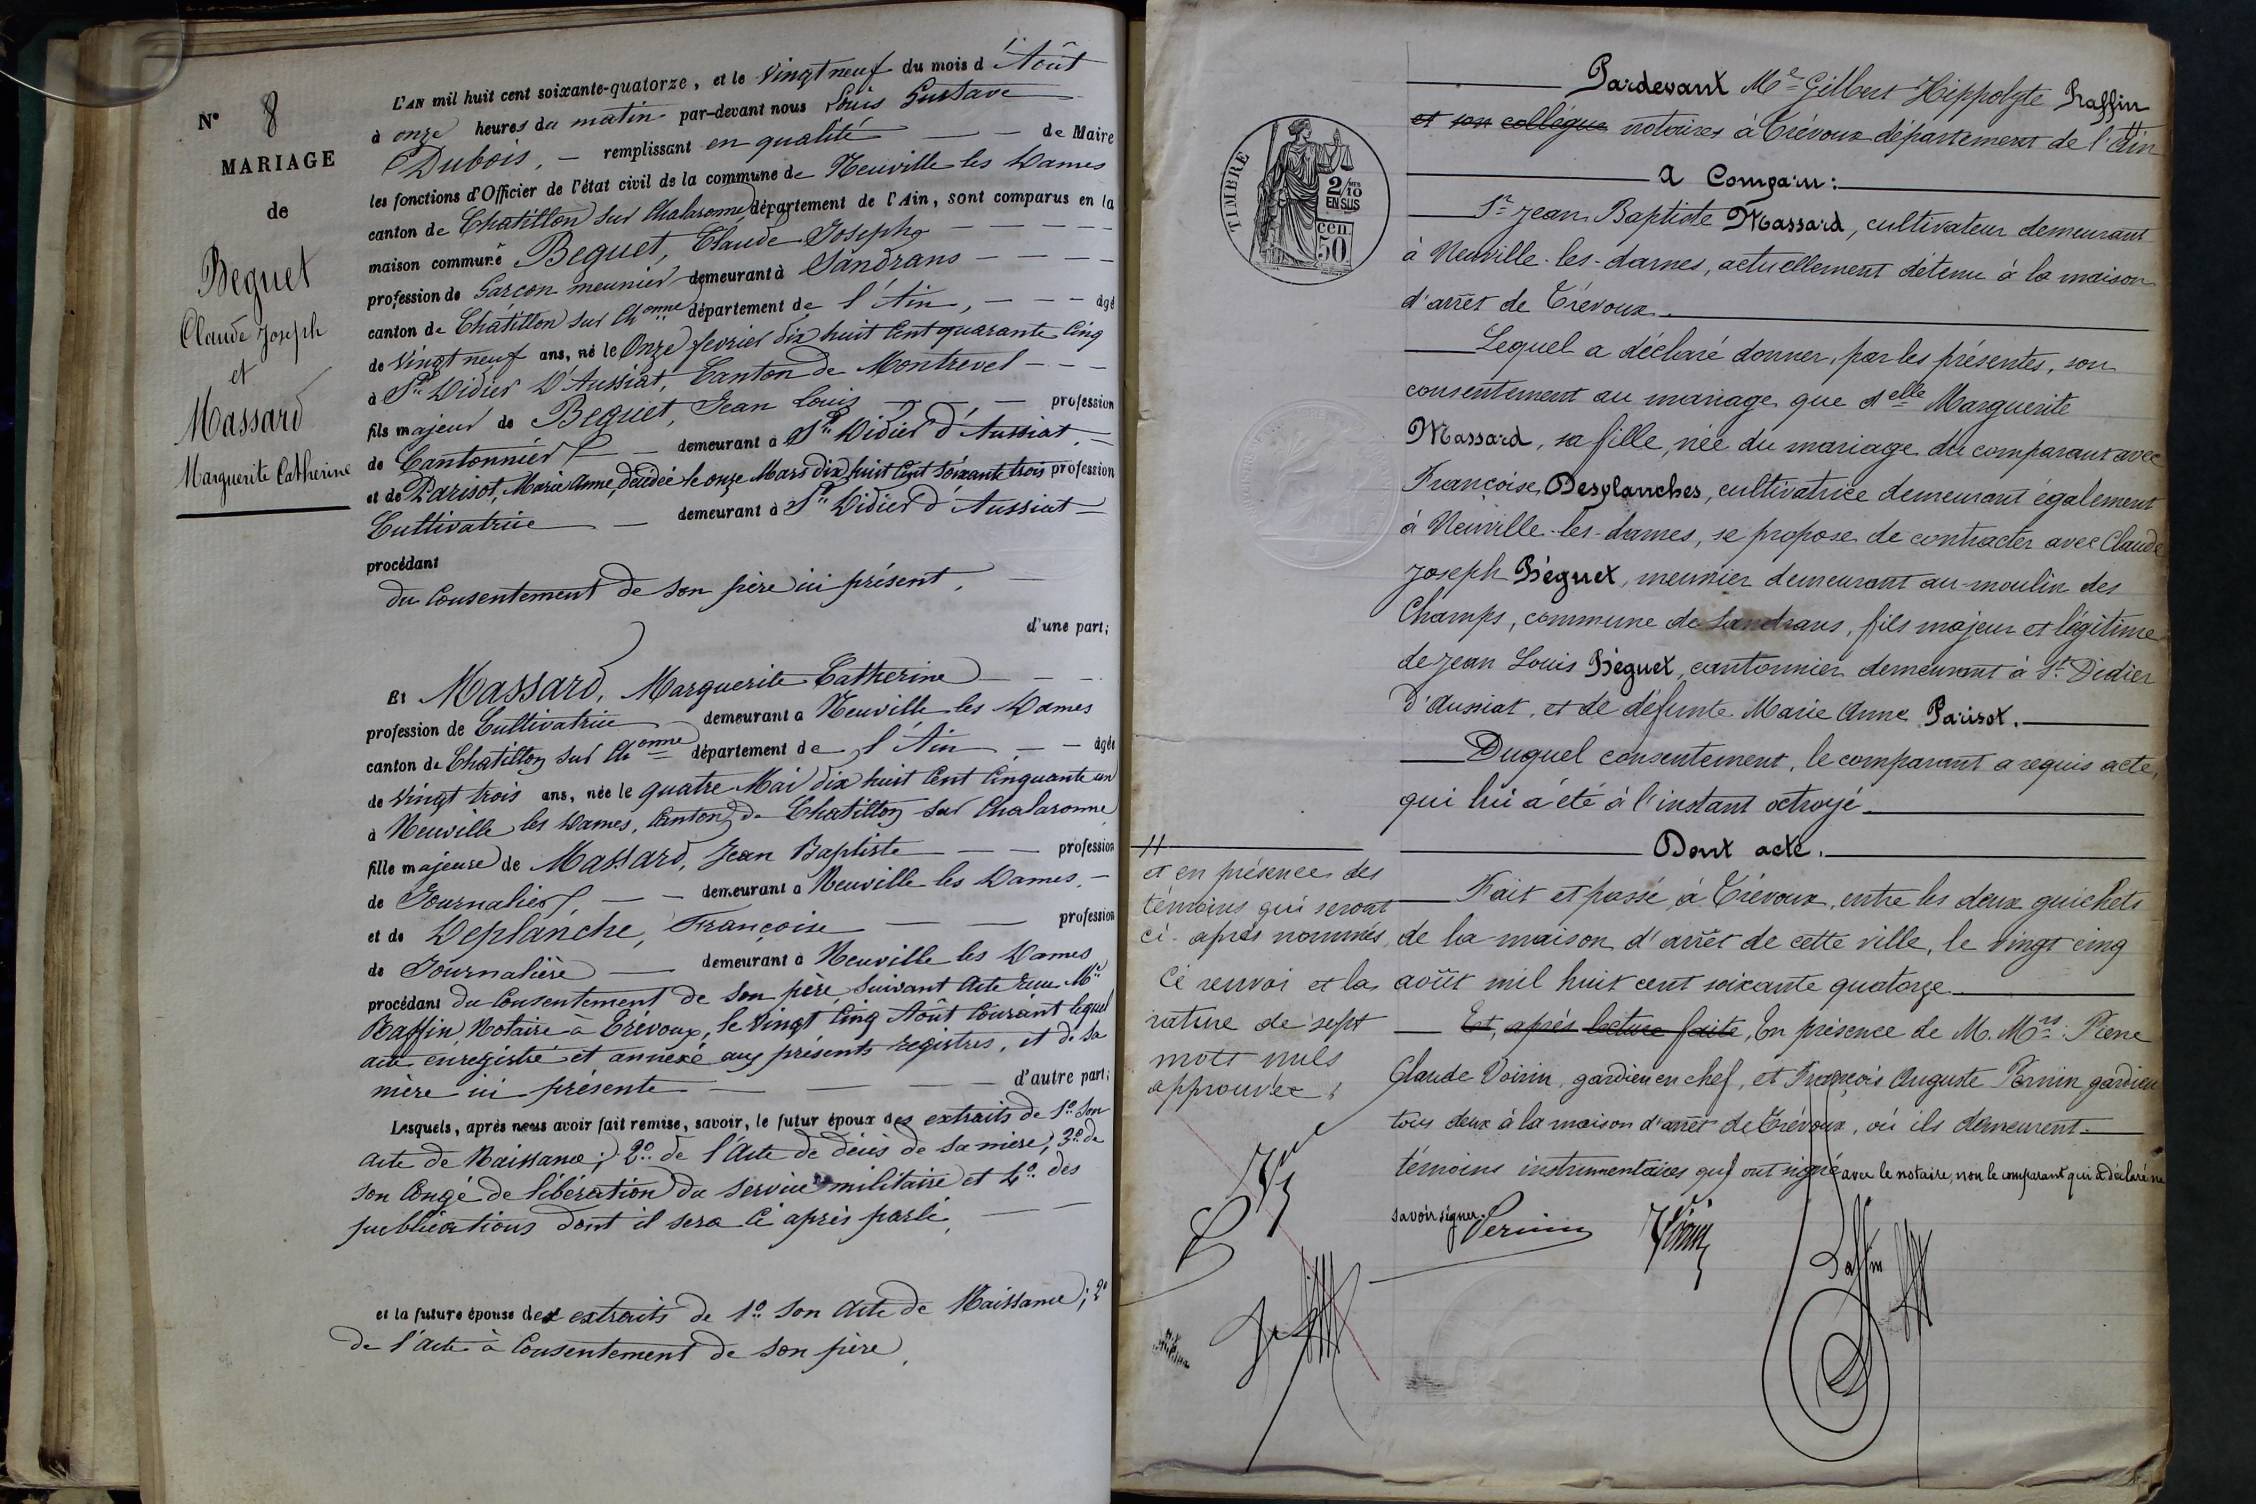 N° 8
MARIAGE
de
Beguet
Claude Joseph
et
Massard
Marguerite Catherine
L'AN mil huit cent soixante-quatorze, et le Vingt neuf du mois d'Août
à onze heures du matin par-devant nous Louis Gustave
Dubois, — remplissant en qualité — — de Maire
les fonctions d'Officier de l'état civil de la commune de Neuville les Dames
canton de Chatillon sur Chalaronne département de l'Ain, sont comparus en la
maison commune Beguet, Claude Joseph — — — — —
profession de Garçon meunier demeurant à Sandrans — — — —
canton de Chatillon sur Ch onne département de l'Ain, — — — âgé
de Vingt neuf ans, né le Onze fevrier dix huit Cent quarante Cinq
à St Didier D'Aussiat, Canton de Montrevel — — —
fils majeur de Beguet, Jean Louis — — — profession
de Cantonnier — demeurant à St Didier d'Aussiat. —
et de Parisot, Marie Anne, décédée le onze Mars dix huit Cent Soixante trois profession
Cultivatrice — demeurant à St Didier d'Aussiat —
procédant
du Consentement de son père ici présent, —
d'une part;
Et Massard, Marguerite Catherine — — —
profession de Cultivatrice demeurant à Neuville les Dames
canton de Chatillon sur Ch onne département de l'Ain — — âgée
de Vingt trois ans, née le quatre Mai dix huit Cent Cinquante un
à Neuville les Dames, Canton de Chatillon sur Chalaronne
fille majeure de Massard, Jean Baptiste — — profession
de Journalier, — — demeurant à Neuville les Dames. —
et de Deplanche, Françoise — — profession
de Journalière — demeurant à Neuville les Dames
procédant du Consentement de son père, suivant acte reçu Me
Raffin, Notaire à Trévoux, le Vingt Cinq Août Courant lequel
acte enregistré et annexé aux présents registres, et de sa
mère ici présente — — — d'autre part;
Lesquels, après nous avoir fait remise, savoir, le futur époux des extraits de 1° Son
acte de Naissance; 2° de l'Acte de décès de Sa mère; 3° de
son Congé de libération du service militaire et 4° des
publications dont il sera Ci après parlé, — —
et la future épouse des extraits de 1° Son acte de Naissance; 2°
de l'acte à Consentement de son père,
TIMBRE
2/10
EN SUS
50 cen
Pardevant Me Gilbert Hippolyte Raffin
et son collégue notaires à Trévoux département de l'Ain //
A Comparu:
Sr Jean Baptiste Massard, cultivateur demeurant
à Neuville-les-dames, actuellement détenu à la maison
d'arrêt de Trévoux.
Lequel a déclaré donner, par les présentes, son
consentement au mariage que delle Marguerite
Massard, sa fille, née du mariage du comparant avec
Françoise Desplanches, cultivatrice demeurant également
à Neuville-les-dames, se propose de contracter avec Claude
Joseph Béguet, meunier demeurant au moulin des
Champs, commune de Sandrans, fils majeur et légitime
de Jean Louis Béguet, cantonnier demeurant à St Didier
d'Aussiat, et de défunte Marie Anne Parisot.
Duquel consentement, le comparant a requis acte,
qui lui a été à l'instant octroyé.
Dont acte.
Fait et passé à Trévoux, entre les deux guichets
de la maison d'arrêt de cette ville, le vingt cinq
août mil huit cent soixante quatorze
Et, après lecture faite, En présence de M. Mrs Pierre
Claude Voisin, gardien en chef, et François Auguste Pernin gardien
tous deux à la maison d'arrêt de Trévoux, où ils demeurent.
témoins instrumentaires qui ont signé avec le notaire, non le comparant qui a déclaré ne
savoir signer.
//
et en présence des
témoins qui seront
ci-après nommés,
Ce renvoi et la
rature de sept
mots nuls
approuvée
Pernin
Voisin
Raffin